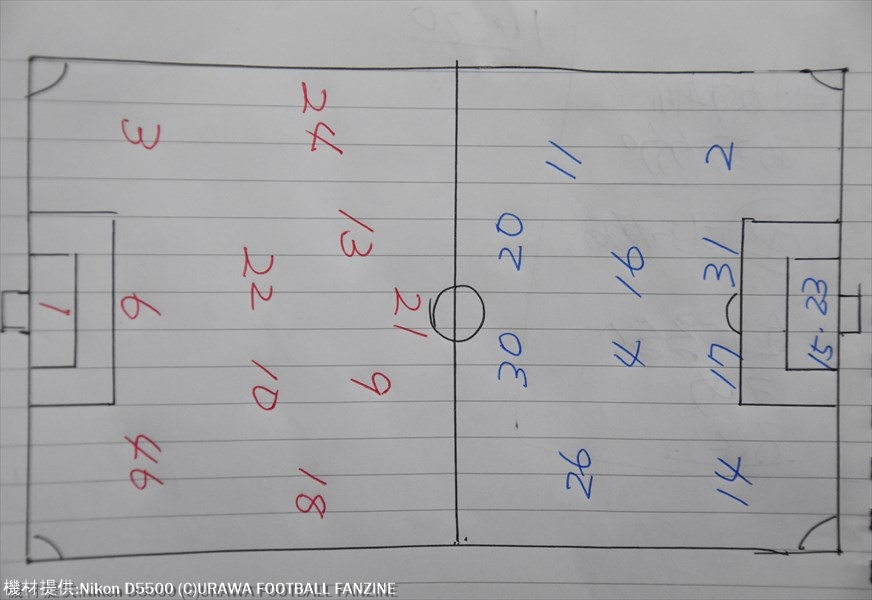 24
3
13
22
21
1
6
10
9
46
18
11
2
20
16
31
15.23
30
4
17
26
14
機材提供:Nikon D5500 (C)URAWA FOOTBALL FANZINE